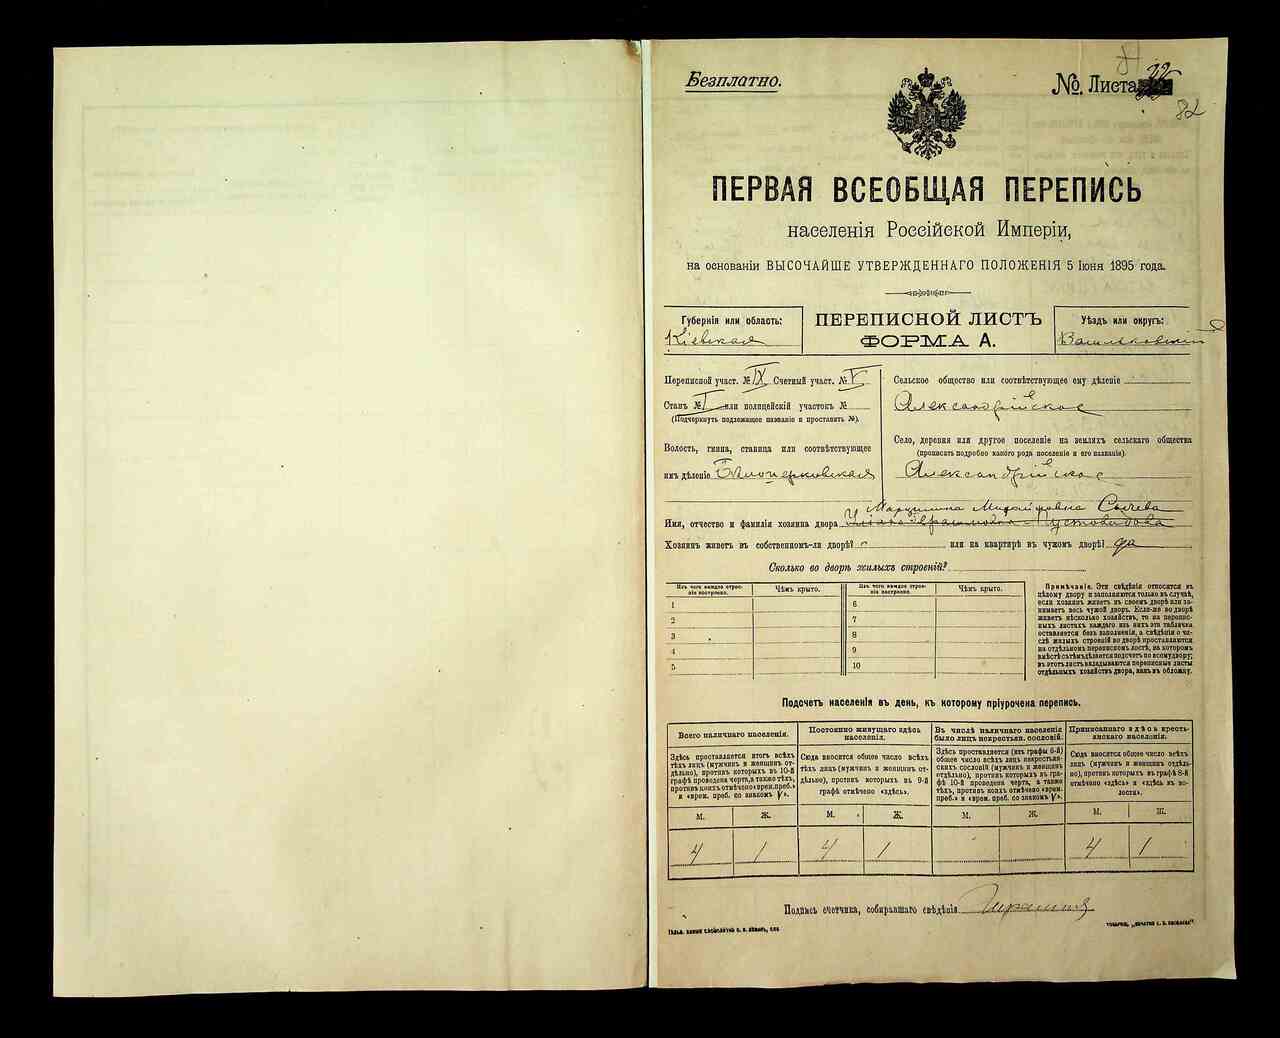 Безплатно.
№. Листа
82
ПЕРВАЯ ВСЕОБЩАЯ ПЕРЕПИСЬ
населенія Россійской Имперіи,
на основаніи ВЫСОЧАЙШЕ УТВЕРЖДЕННАГО ПОЛОЖЕНІЯ 5 Іюня 1895 года.
Губернія или область:
Кіевская
ПЕРЕПИСНОЙ ЛИСТЪ
ФОРМА А.
Уѣздъ или округъ:
Васильковскій
Переписной участ. № IX Счетный участ. № V
Станъ № I или полицейскій участокъ №
(Подчеркнуть подлежащее названіе и проставить №).
Волость, гмина, станица или соотвѣтствующее
имъ дѣленіе Бѣлоцерковская
Сельское общество или соотвѣтствующее ему дѣленіе
Александрійское
Село, деревня или другое поселеніе на земляхъ сельскаго общества
(прописать подробно какого рода поселеніе и его названіе).
Александрійское
Имя, отчество и фамилія хозяина двора
Хозяинъ живетъ въ собственномъ-ли дворѣ? или на квартирѣ въ чужомъ дворѣ? да
Сколько во дворѣ жилыхъ строеній?
Изъ чего каждое строе-
ніе построено.
Чѣмъ крыто.
Изъ чего каждое строе-
ніе построено.
Чѣмъ крыто.
1
2
3
4
5
6
7
8
9
10
Примѣчаніе. Эти свѣдѣнія относятся къ
цѣлому двору и заполняются только въ случаѣ,
если хозяинъ живетъ въ своемъ дворѣ или за-
нимаетъ весь чужой дворъ. Если-же во дворѣ
живетъ нѣсколько хозяйствъ, то на перепис-
ныхъ листахъ каждаго изъ нихъ эта табличка
оставляется безъ заполненія, а свѣдѣнія о чи-
слѣ жилыхъ строеній во дворѣ проставляются
на отдѣльномъ переписномъ листѣ, на которомъ
вмѣстѣ съ тѣмъ дѣлается подсчетъ по всему двору;
въ этотъ листъ вкладываются переписные листы
отдѣльныхъ хозяйствъ двора, какъ въ обложку.
Подсчетъ населенія въ день, къ которому пріурочена перепись.
Всего наличнаго населенія.
Здѣсь проставляется итогъ всѣхъ
тѣхъ лицъ (мужчинъ и женщинъ от-
дѣльно), противъ которыхъ въ 10-й
графѣ проведена черта, а также тѣхъ,
противъ коихъ отмѣчено «врем. преб.»
и «врем. преб. со знакомъ V».
Постоянно живущаго здѣсь
населенія.
Сюда вносится общее число всѣхъ
тѣхъ лицъ (мужчинъ и женщинъ от-
дѣльно), противъ которыхъ въ 9-й
графѣ отмѣчено «здѣсь».
Въ числѣ наличнаго населенія
было лицъ некрестьян. сословій.
Здѣсь проставляется (изъ графы 6-й)
общее число всѣхъ лицъ некрестьян-
скихъ сословій (мужчинъ и женщинъ
отдѣльно), противъ которыхъ въ гра-
фѣ 10-й проведена черта, а также
тѣхъ, противъ коихъ отмѣчено «врем.
преб.» и «врем. преб. со знакомъ V».
Приписаннаго здѣсь кресть-
янскаго населенія.
Сюда вносится общее число всѣхъ
лицъ (мужчинъ и женщинъ отдѣль-
но), противъ которыхъ въ графѣ 8-й
отмѣчено «здѣсь» и «здѣсь въ во-
лости».
М. Ж. М. Ж. М. Ж. М. Ж.
4 1 4 1 4 1
Подпись счетчика, собиравшаго свѣдѣнія